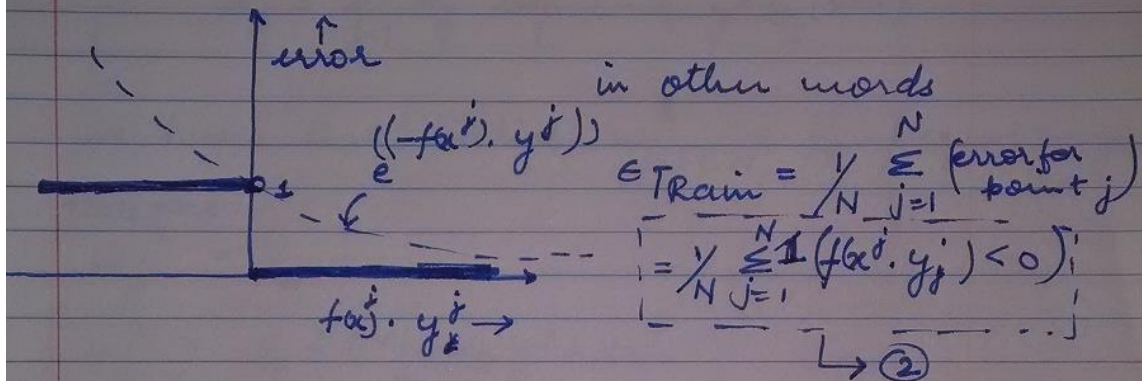 ↑
error
in other words
e^((-f(x^j). y^j))
ϵ_TRain = 1/N N∑j=1 (error for point j)
1
= 1/N N∑j=1 𝟙 (f(x^j. y_j^j) < 0)
f(x^j). y^j →
↳ ②